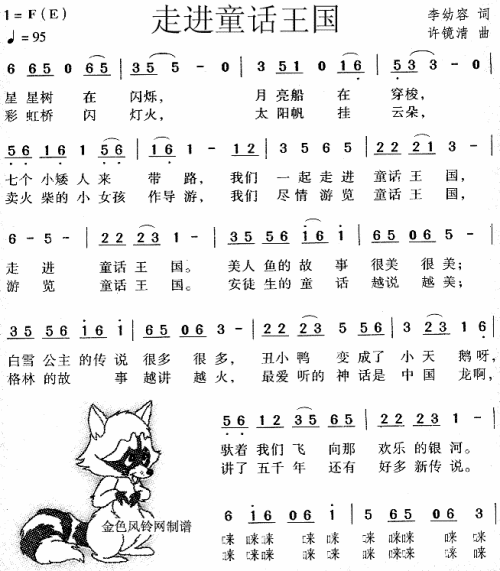 走进童话王国
1=F(E)
♩=95
李幼容 词
许镜清 曲
6 65 0 65 | 35 5 - 0 | 3 51 0 16 | 53 3 - 0 |
星 星树 在 闪烁， 月 亮船 在 穿梭，
彩 虹桥 闪 灯火， 太 阳帆 挂 云朵，
56 16 1 56 | 16 1 - 12 | 3 5 6 5 | 22 21 3 - |
七个 小矮 人 来 带 路， 我们 一 起 走 进 童话 王 国，
卖火 柴的 小 女孩 作导 游， 我们 尽 情 游 览 童话 王 国，
6 - 5 - | 22 23 1 - | 35 56 i6 i | 65 06 5 - |
走 进 童话 王 国。 美人 鱼的 故 事 很美 很 美；
游 览 童话 王 国。 安徒 生的 童 话 越说 越 美；
35 56 i6 i | 65 06 3 - | 22 23 5 56 | 3 23 1 6 |
白雪 公主 的传 说 很多 很 多， 丑小 鸭 变 成了 小 天 鹅 呀，
格林 的故 事 越讲 越 火， 最爱 听的 神 话是 中 国 龙 啊，
56 12 35 65 | 22 23 1 - |
驮着 我们 飞 向那 欢乐 的银 河。
讲了 五千 年 还有 好多 新传 说。
6 i6 06 i | 5 65 06 3 |
咪 咪咪 咪 咪 咪 咪咪 咪 咪
咪 咪咪 咪 咪 咪 咪咪 咪 咪
金色风铃网制谱